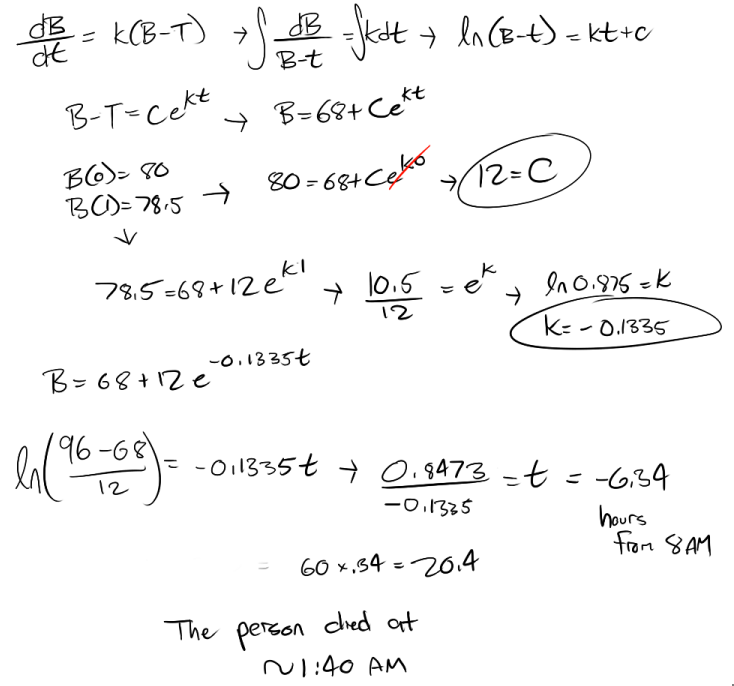 dB/dt = k(B-T) → ∫ dB/B-t = ∫kdt → ln(B-t) = kt+c
B-T = Ce^kt → B=68+Ce^kt
B(0)= 80
B(1)=78.5 → 80=68+Ce^k0 → 12=C
↓
78.5=68+12e^k1 → 10.5/12 = e^k → ln 0.875=k
k= -0.1335
B= 68+12e^-0.1335t
ln(96-68/12) = -0.1335t → 0.8473/-0.1335 = t = -6.34
hours
from 8AM
= 60 x .34 = 20.4
The person died at
~1:40 AM